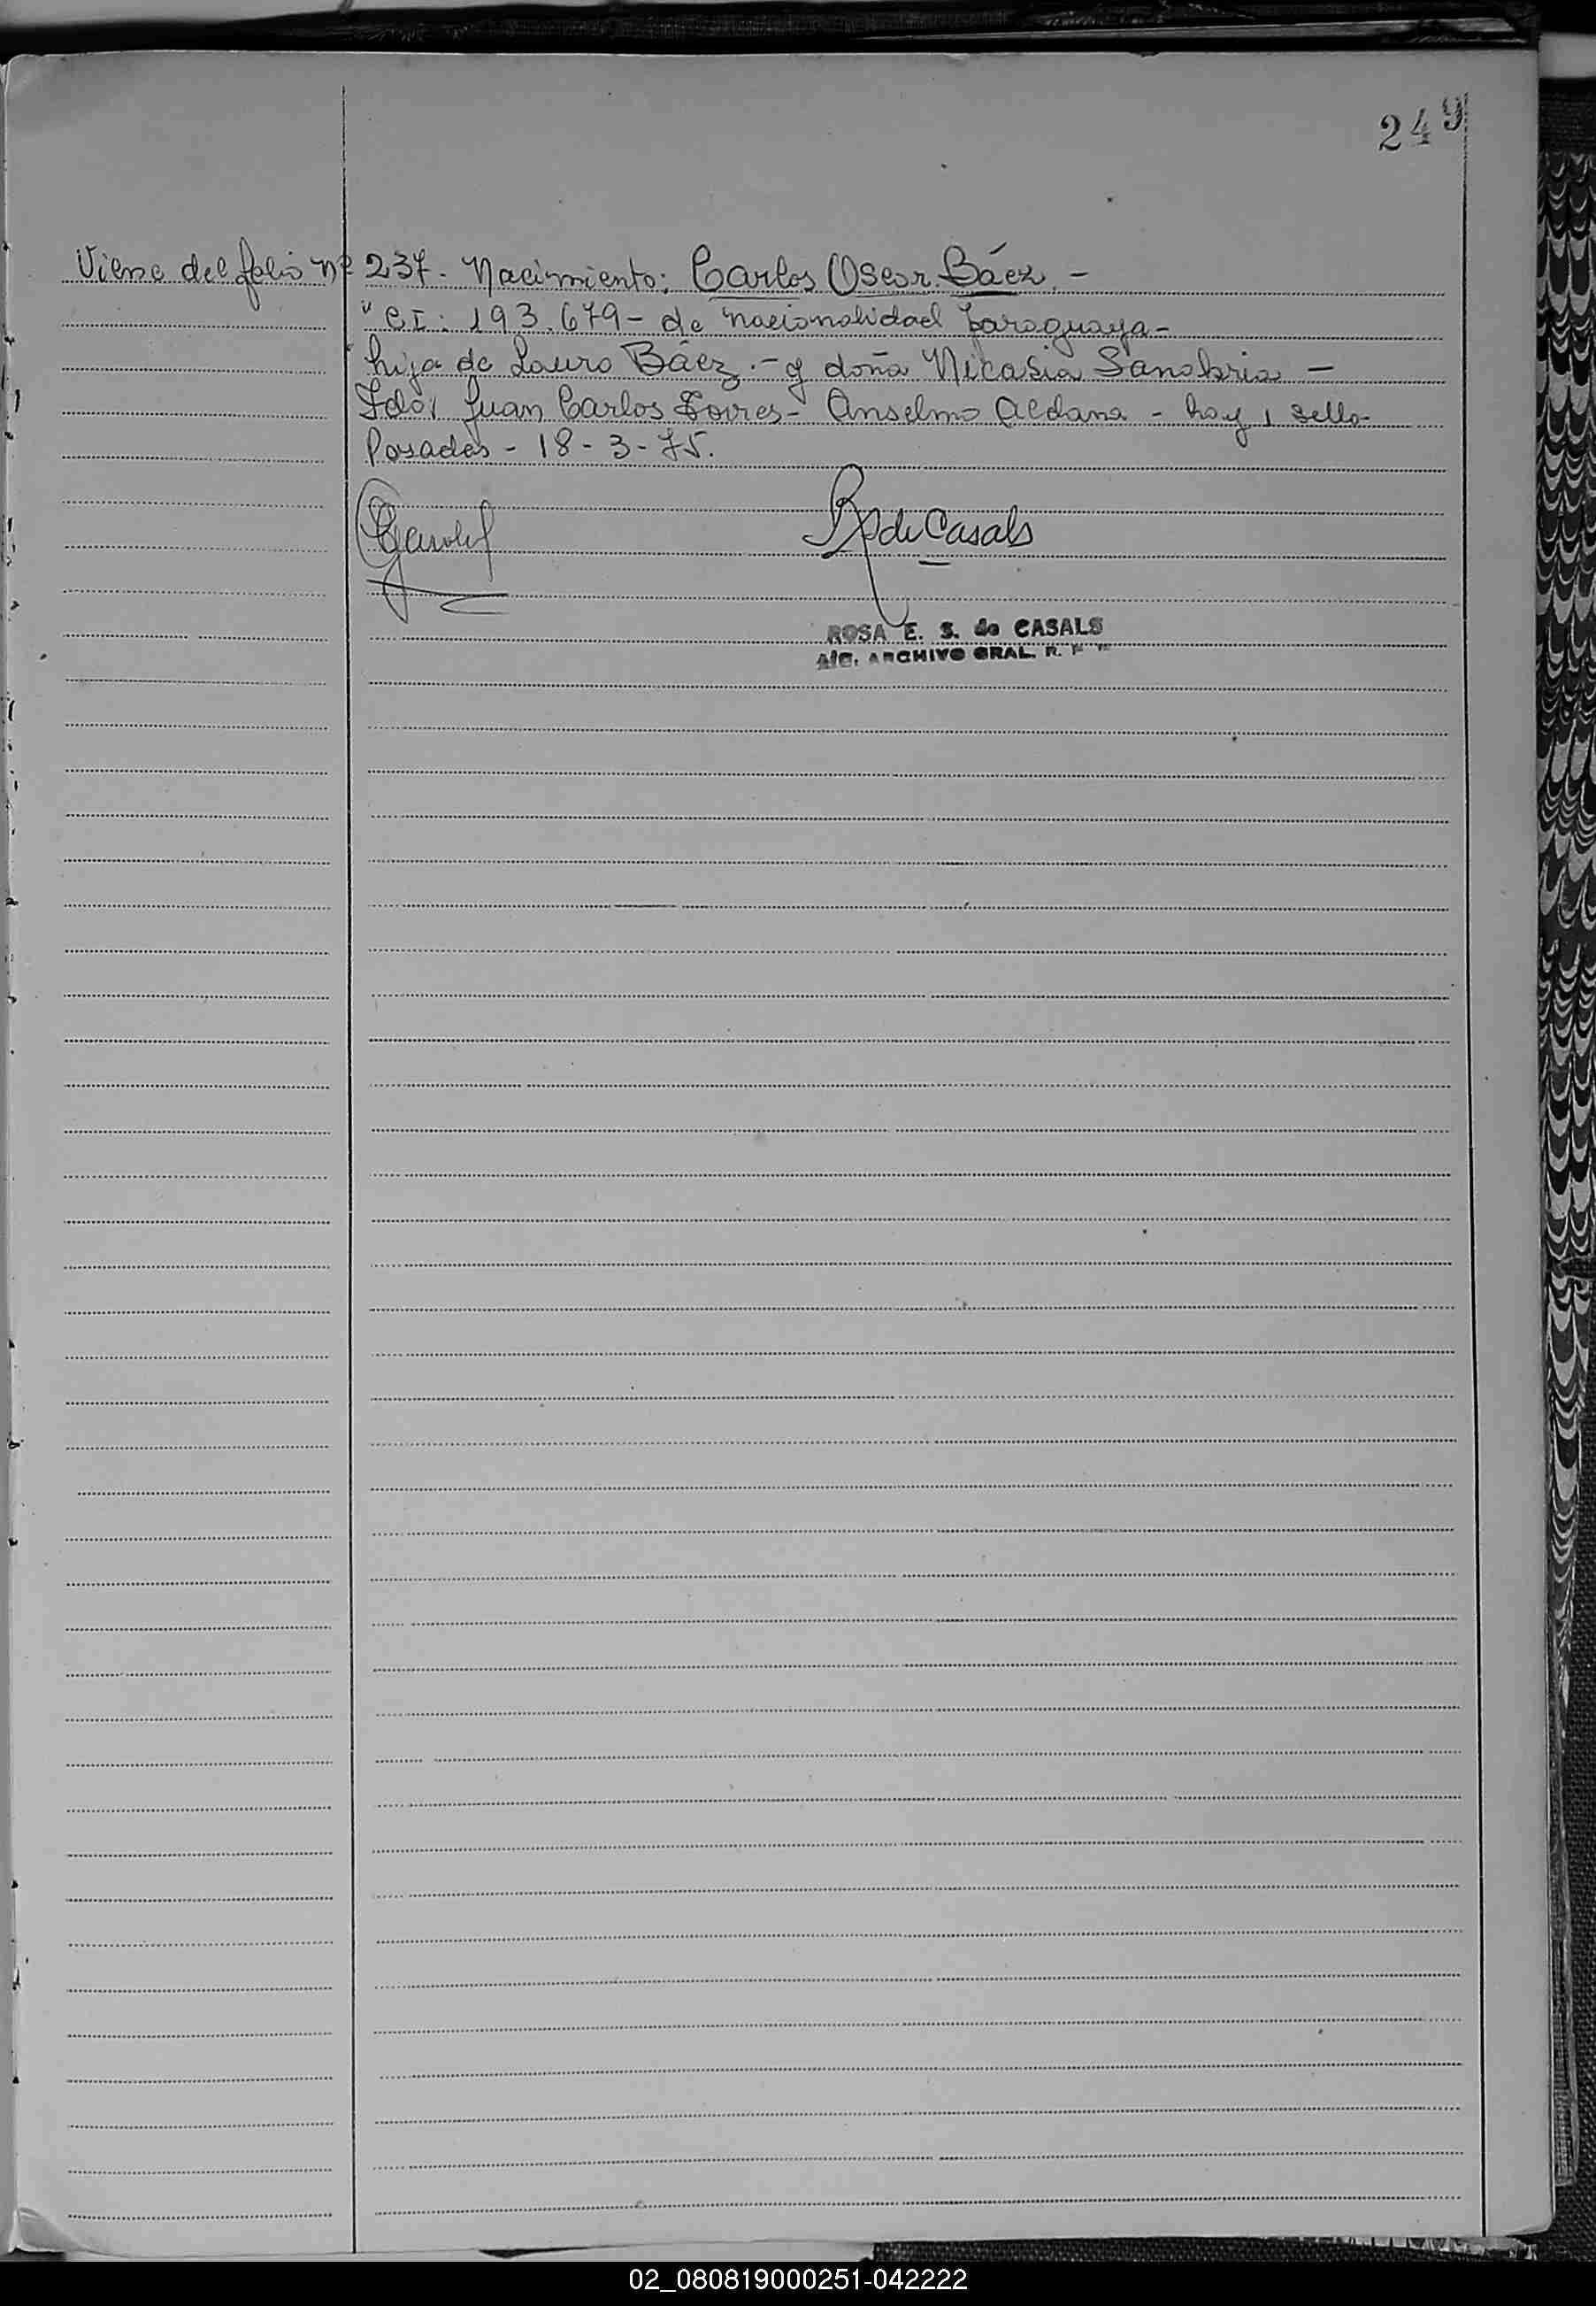 249
Viene del folio nº 237. Nacimiento: Carlos Oscar Báez. -
" C.I: 193.679 - de nacionalidad paraguaya -
hija de Lauro Báez. - y doña Nicasia Sanabria -
Fdo: Juan Carlos Torres - Anselmo Aldana - hay 1 sello -
Posadas - 18 - 3 - 75.
R de Casals
ROSA E. S. de CASALS
A/C. ARCHIVO GRAL. R.
02_080819000251-042222